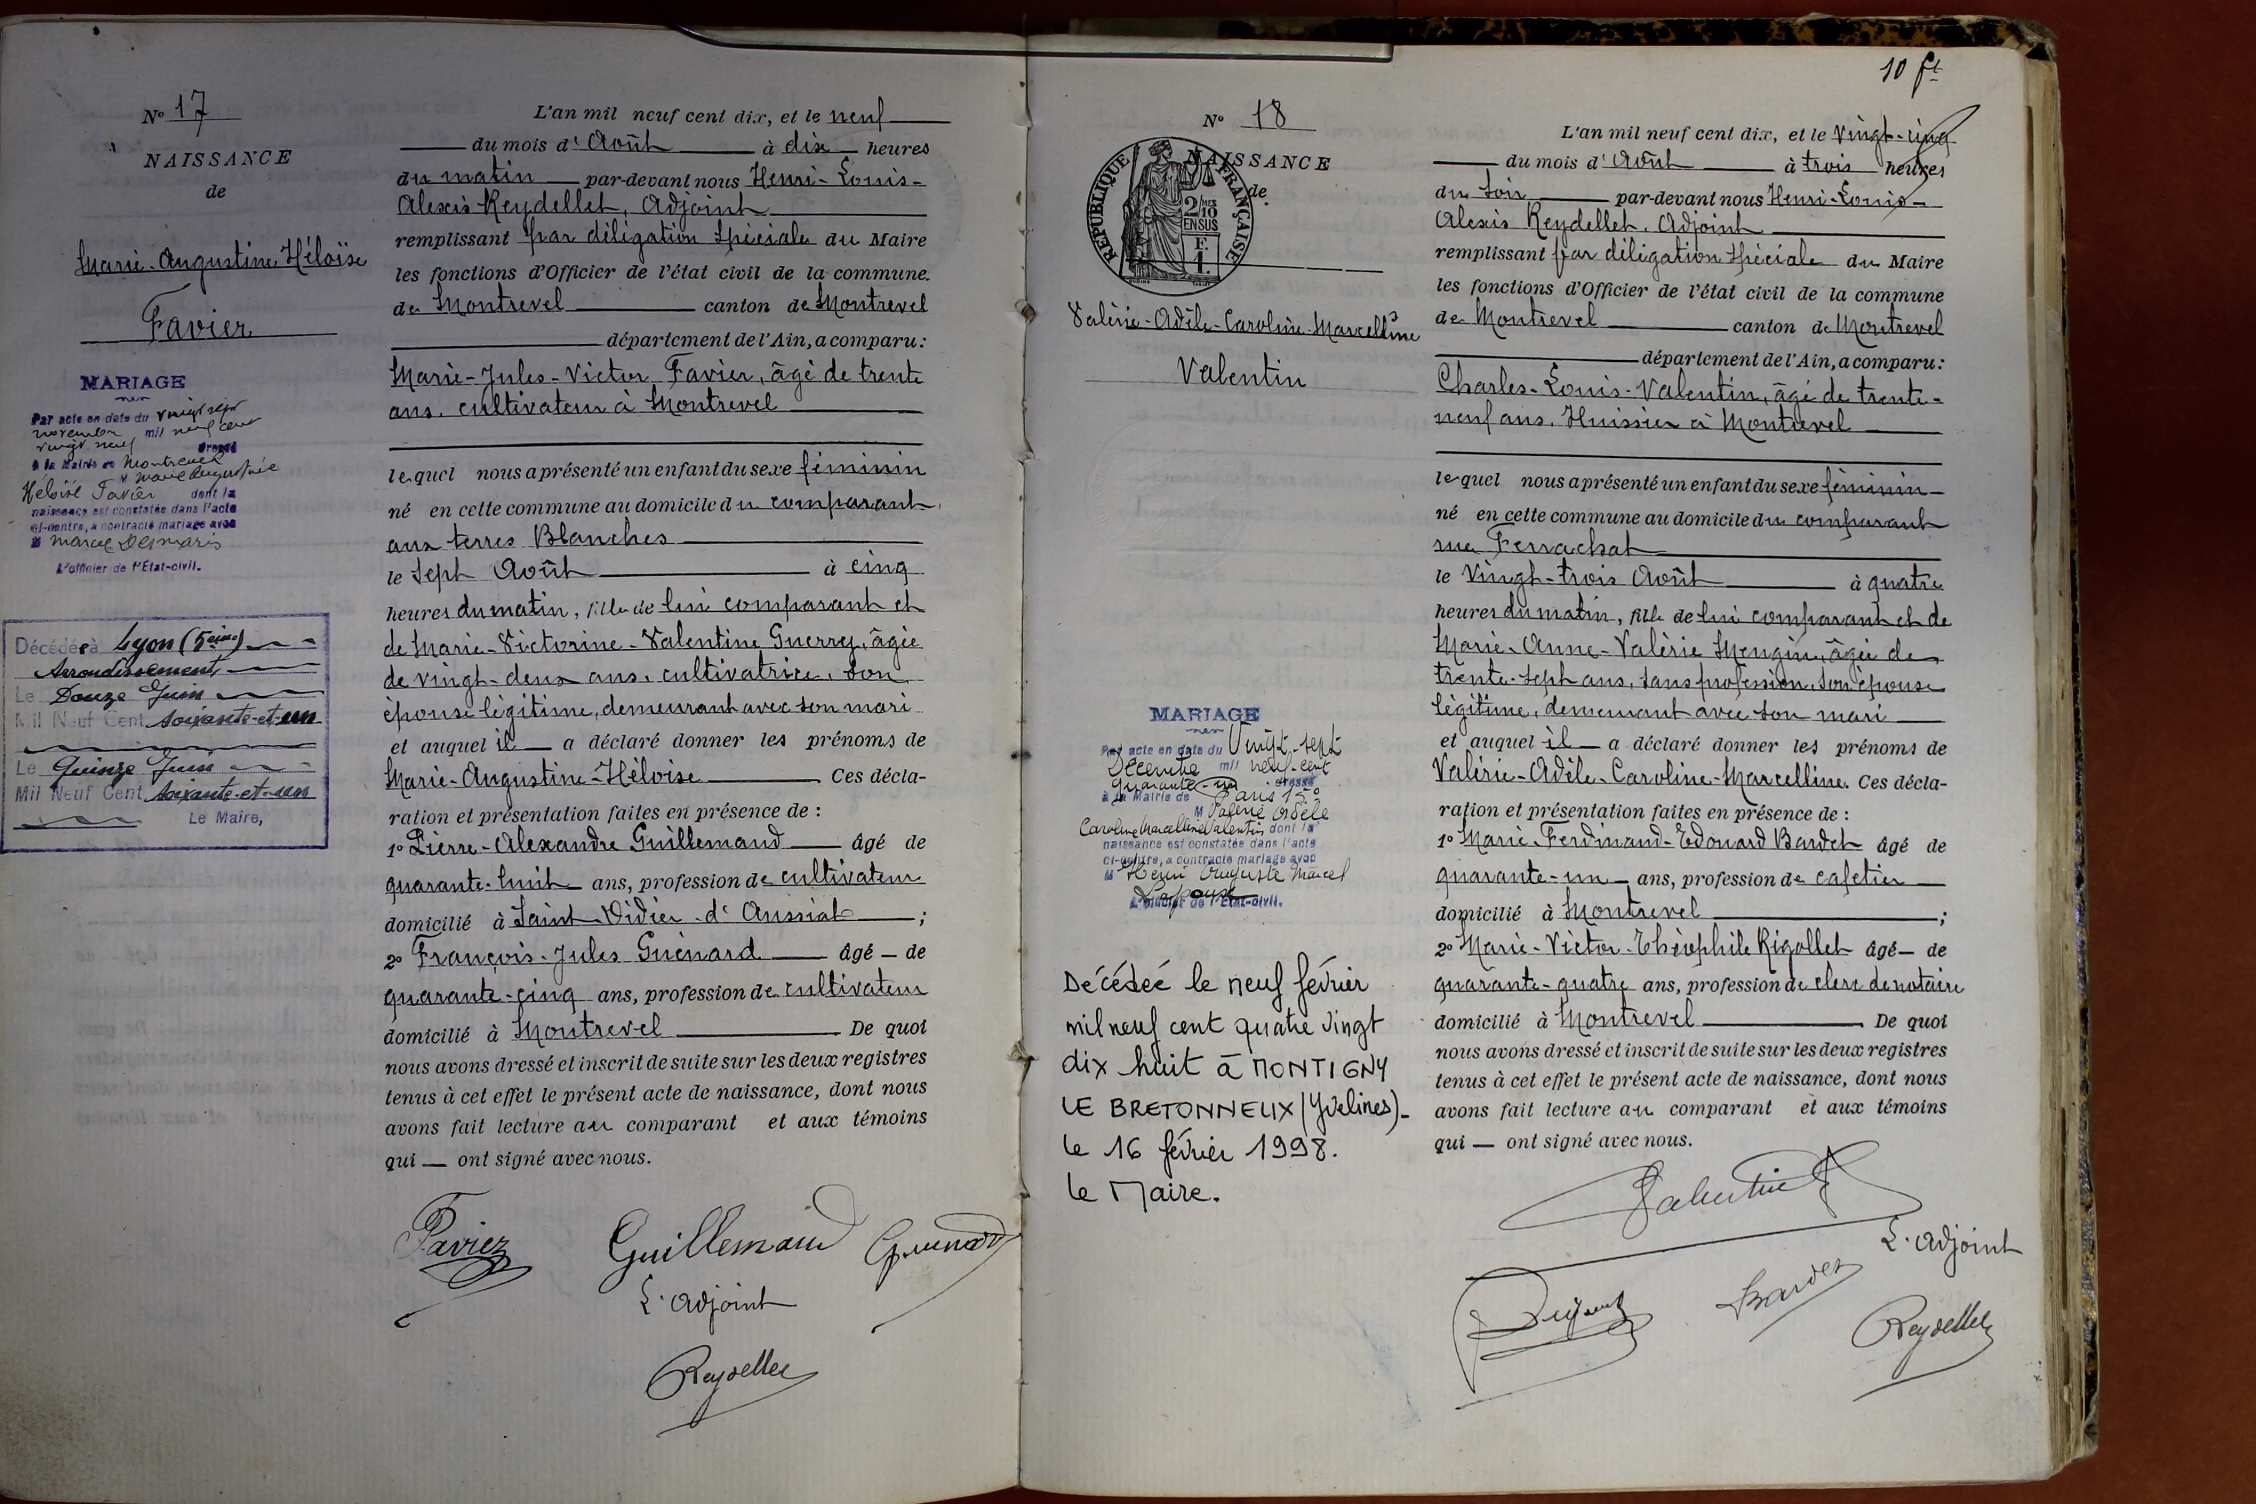 N° 17
NAISSANCE
de
Marie-Augustine-Héloïse
Favier
MARIAGE
Par acte en date du vingt sept
novembre mil neuf cent
vingt neuf dressé
à la Mairie de Montrevel
M Marie Augustine
Héloïse Favier dont la
naissance est constatée dans l'acte
ci-contre, a contracté mariage avec
M Marcel Desmaris
L'officier de l'Etat-civil.
Décédée à Lyon (5eime)
Arrondissement
Le Douze Juin
Mil Neuf Cent soixante-et-un
Le Quinze Juin
Mil Neuf Cent soixante-et-un
Le Maire,
L'an mil neuf cent dix, et le neuf
du mois d'Août à dix heures
du matin par-devant nous Henri-Louis-
Alexis Reydellet, Adjoint
remplissant par déligation spéciale du Maire
les fonctions d'Officier de l'état civil de la commune
de Montrevel canton de Montrevel
département de l'Ain, a comparu:
Marie-Jules-Victor Favier, âgé de trente
ans, cultivateur à Montrevel
lequel nous a présenté un enfant du sexe féminin
né en cette commune au domicile du comparant,
aux terres Blanches
le sept Août à cinq
heures du matin, fille de lui comparant et
de Marie-Victorine-Valentine Guerry, âgée
de vingt-deux ans, cultivatrice, son
épouse légitime, demeurant avec son mari
et auquel il a déclaré donner les prénoms de
Marie-Augustine-Héloïse Ces décla-
ration et présentation faites en présence de :
1° Pierre-Alexandre Guillemaud âgé de
quarante-huit ans, profession de cultivateur
domicilié à Saint-Didier-d'Aussiat ;
2° François-Jules Guénard âgé de
quarante-cinq ans, profession de cultivateur
domicilié à Montrevel De quoi
nous avons dressé et inscrit de suite sur les deux registres
tenus à cet effet le présent acte de naissance, dont nous
avons fait lecture au comparant et aux témoins
qui ont signé avec nous.
Favier Guillemaud Guenard
L'adjoint
Reydellet
10 ft
N° 18
NAISSANCE
de
RÉPUBLIQUE FRANÇAISE
2/10 EN SUS
F.
1.
Valérie-Adèle-Caroline-Marcelline
Valentin
MARIAGE
Par acte en date du Vingt-sept
Décembre mil neuf-cent
quarante-un dressé
à la Mairie de Paris 15°
M Valérie Adèle
Caroline Marcelline Valentin dont la
naissance est constatée dans l'acte
ci-contre, a contracté mariage avec
M Henri Auguste Marcel
L'officier de l'Etat-civil.
Décédée le neuf février
mil neuf cent quatre vingt
dix huit à MONTIGNY
LE BRETONNEUX (Yvelines)_
le 16 février 1998.
le Maire.
L'an mil neuf cent dix, et le vingt-cinq
du mois d'Août à trois heures
du soir par-devant nous Henri-Louis-
Alexis Reydellet, Adjoint
remplissant par déligation spéciale du Maire
les fonctions d'Officier de l'état civil de la commune
de Montrevel canton de Montrevel
département de l'Ain, a comparu:
Charles-Louis-Valentin, âgé de trente-
neuf ans, Huissier à Montrevel
lequel nous a présenté un enfant du sexe féminin
né en cette commune au domicile du comparant
rue Ferrachat
le vingt-trois Août à quatre
heures du matin, fille de lui comparant et de
Marie-Anne-Valérie Mengin, âgée de
trente-sept ans, sans profession, son épouse
légitime, demeurant avec son mari
et auquel il a déclaré donner les prénoms de
Valérie-Adèle-Caroline-Marcelline. Ces décla-
ration et présentation faites en présence de :
1° Marie-Ferdinand-Edouard Bardet âgé de
quarante-un ans, profession de cafetier
domicilié à Montrevel ;
2° Marie-Victor-Théophile Rigollet âgé de
quarante-quatre ans, profession de clerc de notaire
domicilié à Montrevel De quoi
nous avons dressé et inscrit de suite sur les deux registres
tenus à cet effet le présent acte de naissance, dont nous
avons fait lecture au comparant et aux témoins
qui ont signé avec nous.
Valentin
L'adjoint
Bardet
Reydellet